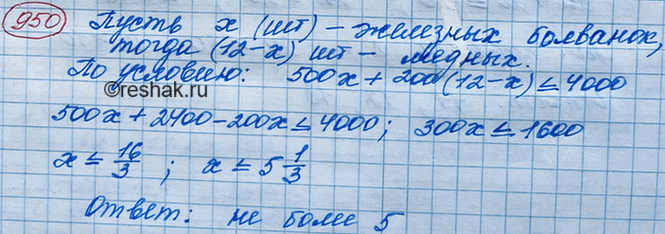 950 Пусть x (шт) – железных болванок,
тогда (12-x) шт – медных.
По условию: 500x + 200(12-x) ≤ 4000
©reshak.ru
500x + 2400 - 200x ≤ 4000; 300x ≤ 1600
x ≤ 16/3 ; x ≤ 5 1/3
Ответ: не более 5